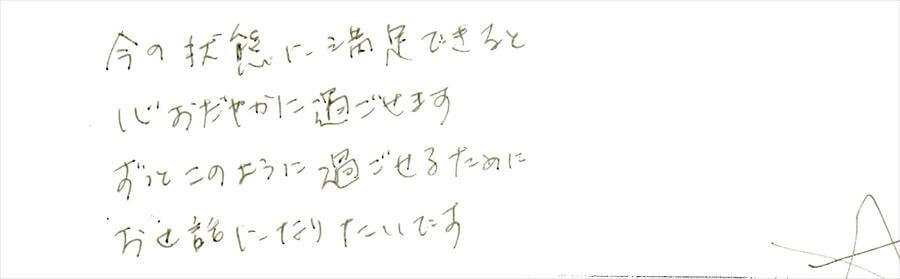 今の状態に満足できると
心おだやかに過ごせます
ずっとこのように過ごせるために
お世話になりたいです